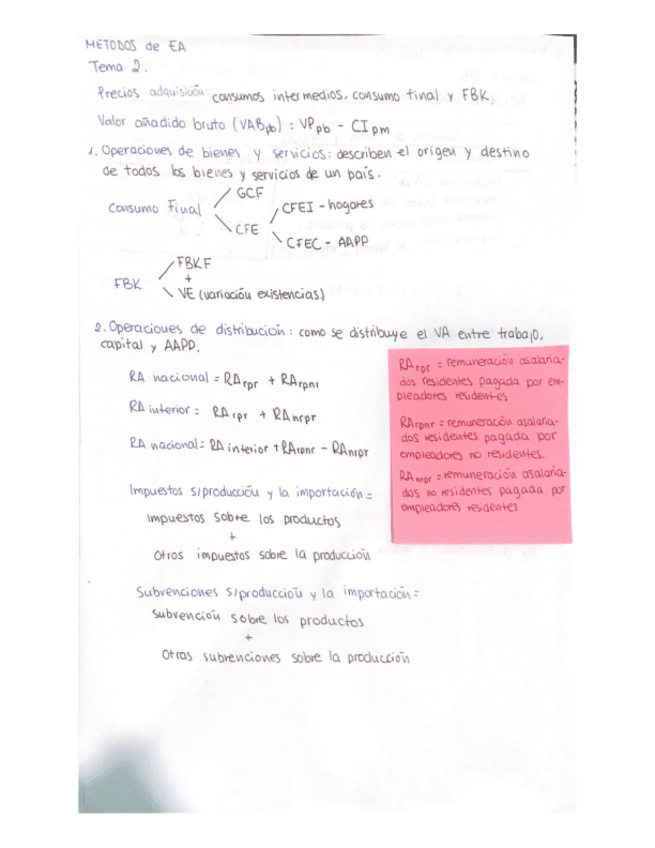 METODOS de EA
Tema 2.
Precios adquisición: consumos intermedios, consumo final y FBK.
Valor añadido bruto (VABpb) = VPpb - CIpm
1. Operaciones de bienes y servicios: describen el origen y destino
de todos los bienes y servicios de un país.
Consumo Final
GCF
CFE
CFEI - hogares
CFEC - AAPP
FBK
FBKF
+
VE (variación existencias)
2. Operaciones de distribución: como se distribuye el VA entre trabajo,
capital y AAPP.
RA nacional = RArpr + RArpnr
RA interior = RArpr + RAnrpr
RA nacional = RA interior + RArpnr - RAnrpr
RArpr = remuneración asalaria-
dos residentes pagada por em-
pleadores residentes
RArpnr = remuneración asalaria-
dos residentes pagada por
empleadores no residentes.
RAnrpr = remuneración asalaria-
dos no residentes pagada por
empleadores residentes
Impuestos s/producción y la importación =
Impuestos sobre los productos
+
Otros impuestos sobre la producción
Subvenciones s/producción y la importación =
Subvención sobre los productos
+
Otras subvenciones sobre la producción